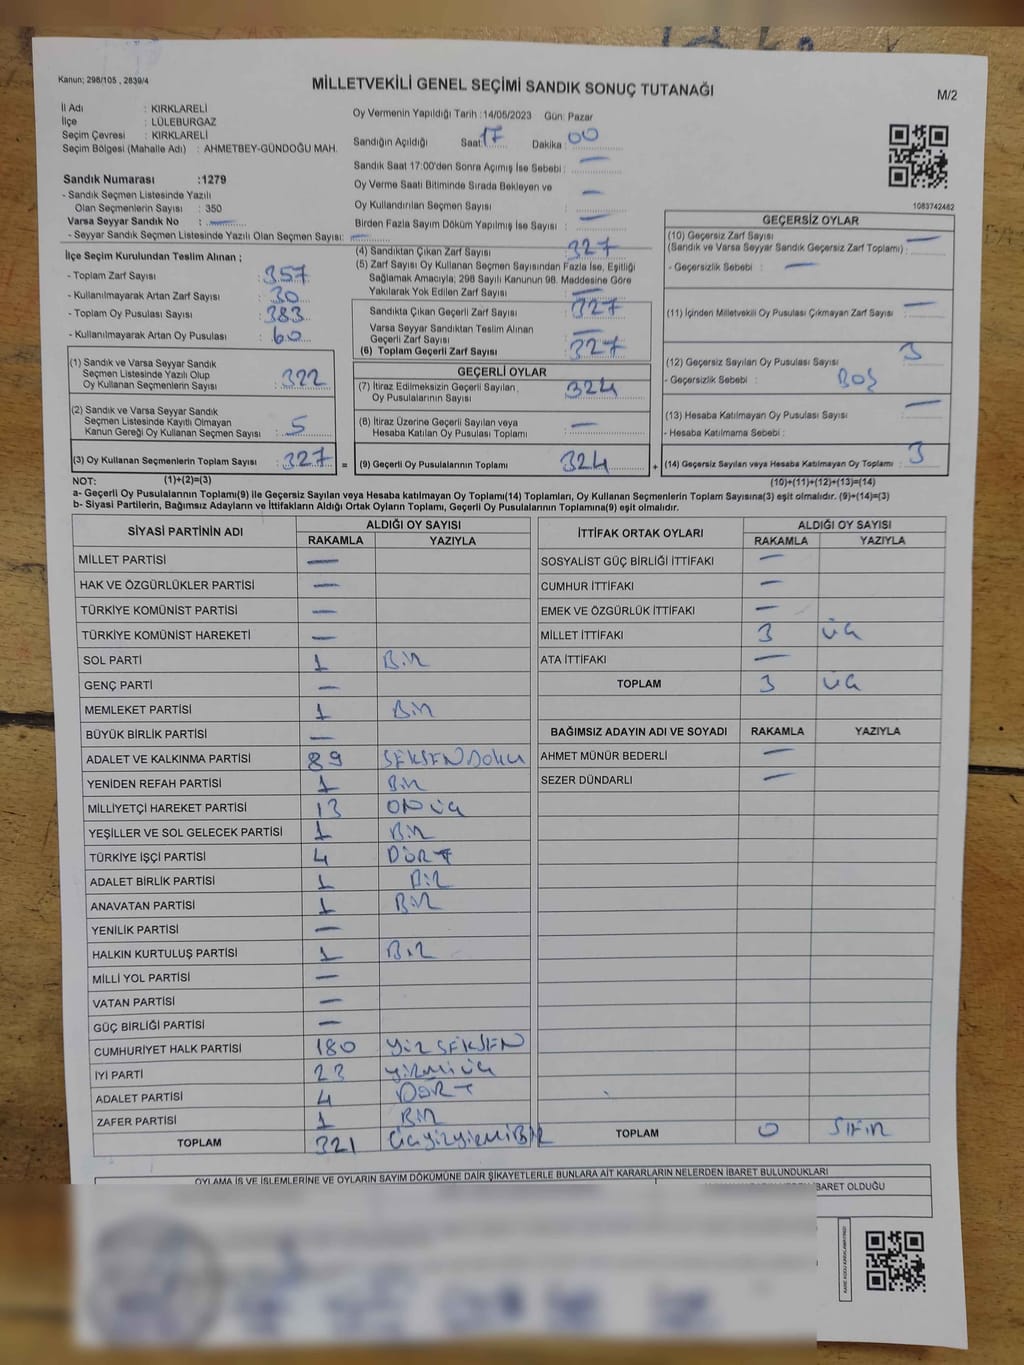 Kanun; 298/105 , 2839/4
MİLLETVEKİLİ GENEL SEÇİMİ SANDIK SONUÇ TUTANAĞI
M/2
İl Adı : KIRKLARELİ
İlçe : LÜLEBURGAZ
Seçim Çevresi : KIRKLARELİ
Seçim Bölgesi (Mahalle Adı) : AHMETBEY-GÜNDOĞU MAH.
Sandık Numarası :1279
- Sandık Seçmen Listesinde Yazılı
Olan Seçmenlerin Sayısı : 350
Varsa Seyyar Sandık No : —
- Seyyar Sandık Seçmen Listesinde Yazılı Olan Seçmen Sayısı: —
Oy Vermenin Yapıldığı Tarih :14/05/2023 Gün: Pazar
Sandığın Açıldığı Saat 17 Dakika : 00
Sandık Saat 17:00'den Sonra Açımış İse Sebebi : —
Oy Verme Saati Bitiminde Sırada Bekleyen ve —
Oy Kullandırılan Seçmen Sayısı :
Birden Fazla Sayım Döküm Yapılmış İse Sayısı : —
1083742482
İlçe Seçim Kurulundan Teslim Alınan ;
- Toplam Zarf Sayısı : 357
- Kullanılmayarak Artan Zarf Sayısı : 30
- Toplam Oy Pusulası Sayısı : 383
- Kullanılmayarak Artan Oy Pusulası : 60
(1) Sandık ve Varsa Seyyar Sandık
Seçmen Listesinde Yazılı Olup
Oy Kullanan Seçmenlerin Sayısı : 322
(2) Sandık ve Varsa Seyyar Sandık
Seçmen Listesinde Kayıtlı Olmayan
Kanun Gereği Oy Kullanan Seçmen Sayısı : 5
(3) Oy Kullanan Seçmenlerin Toplam Sayısı : 327 =
(4) Sandıktan Çıkan Zarf Sayısı : 327
(5) Zarf Sayısı Oy Kullanan Seçmen Sayısından Fazla İse, Eşitliği
Sağlamak Amacıyla; 298 Sayılı Kanunun 98. Maddesine Göre
Yakılarak Yok Edilen Zarf Sayısı : —
Sandıkta Çıkan Geçerli Zarf Sayısı : 327
Varsa Seyyar Sandıktan Teslim Alınan —
Geçerli Zarf Sayısı :
(6) Toplam Geçerli Zarf Sayısı : 327
GEÇERLİ OYLAR
(7) İtiraz Edilmeksizin Geçerli Sayılan, : 324
Oy Pusulalarının Sayısı
(8) İtiraz Üzerine Geçerli Sayılan veya : —
Hesaba Katılan Oy Pusulası Toplamı
(9) Geçerli Oy Pusulalarının Toplamı 324 +
GEÇERSİZ OYLAR
(10) Geçersiz Zarf Sayısı —
(Sandık ve Varsa Seyyar Sandık Geçersiz Zarf Toplamı) :
- Geçersizlik Sebebi : —
(11) İçinden Milletvekili Oy Pusulası Çıkmayan Zarf Sayısı : —
(12) Geçersiz Sayılan Oy Pusulası Sayısı : 3
- Geçersizlik Sebebi : BOŞ
(13) Hesaba Katılmayan Oy Pusulası Sayısı : —
- Hesaba Katılmama Sebebi :
(14) Geçersiz Sayılan veya Hesaba Katılmayan Oy Toplamı : 3
NOT: (1)+(2)=(3) (10)+(11)+(12)+(13)=(14)
a- Geçerli Oy Pusulalarının Toplamı(9) ile Geçersiz Sayılan veya Hesaba katılmayan Oy Toplamı(14) Toplamları, Oy Kullanan Seçmenlerin Toplam Sayısına(3) eşit olmalıdır. (9)+(14)=(3)
b- Siyasi Partilerin, Bağımsız Adayların ve İttifakların Aldığı Ortak Oyların Toplamı, Geçerli Oy Pusulalarının Toplamına(9) eşit olmalıdır.
SİYASİ PARTİNİN ADI ALDIĞI OY SAYISI
RAKAMLA YAZIYLA
MİLLET PARTİSİ —
HAK VE ÖZGÜRLÜKLER PARTİSİ —
TÜRKİYE KOMÜNİST PARTİSİ —
TÜRKİYE KOMÜNİST HAREKETİ —
SOL PARTİ 1 Bir
GENÇ PARTİ —
MEMLEKET PARTİSİ 1 Bir
BÜYÜK BİRLİK PARTİSİ —
ADALET VE KALKINMA PARTİSİ 89 SEKSENDOKU
YENİDEN REFAH PARTİSİ 1 Bir
MİLLİYETÇİ HAREKET PARTİSİ 13 ON ÜÇ
YEŞİLLER VE SOL GELECEK PARTİSİ 1 Bir
TÜRKİYE İŞÇİ PARTİSİ 4 DÖRT
ADALET BİRLİK PARTİSİ 1 Bir
ANAVATAN PARTİSİ 1 Bir
YENİLİK PARTİSİ —
HALKIN KURTULUŞ PARTİSİ 1 Bir
MİLLİ YOL PARTİSİ —
VATAN PARTİSİ —
GÜÇ BİRLİĞİ PARTİSİ —
CUMHURİYET HALK PARTİSİ 180 YÜZ SEKSEN
İYİ PARTİ 23 yirmi üç
ADALET PARTİSİ 4 DÖRT
ZAFER PARTİSİ 1 Bir
TOPLAM 321
İTTİFAK ORTAK OYLARI ALDIĞI OY SAYISI
RAKAMLA YAZIYLA
SOSYALİST GÜÇ BİRLİĞİ İTTİFAKI —
CUMHUR İTTİFAKI —
EMEK VE ÖZGÜRLÜK İTTİFAKI —
MİLLET İTTİFAKI 3 ÜÇ
ATA İTTİFAKI —
TOPLAM 3 ÜÇ
BAĞIMSIZ ADAYIN ADI VE SOYADI RAKAMLA YAZIYLA
AHMET MÜNÜR BEDERLİ —
SEZER DÜNDARLI —
TOPLAM 0 SIFIR
OYLAMA İŞ VE İŞLEMLERİNE VE OYLARIN SAYIM DÖKÜMÜNE DAİR ŞİKAYETLERLE BUNLARA AİT KARARLARIN NELERDEN İBARET BULUNDUKLARI
İBARET OLDUĞU